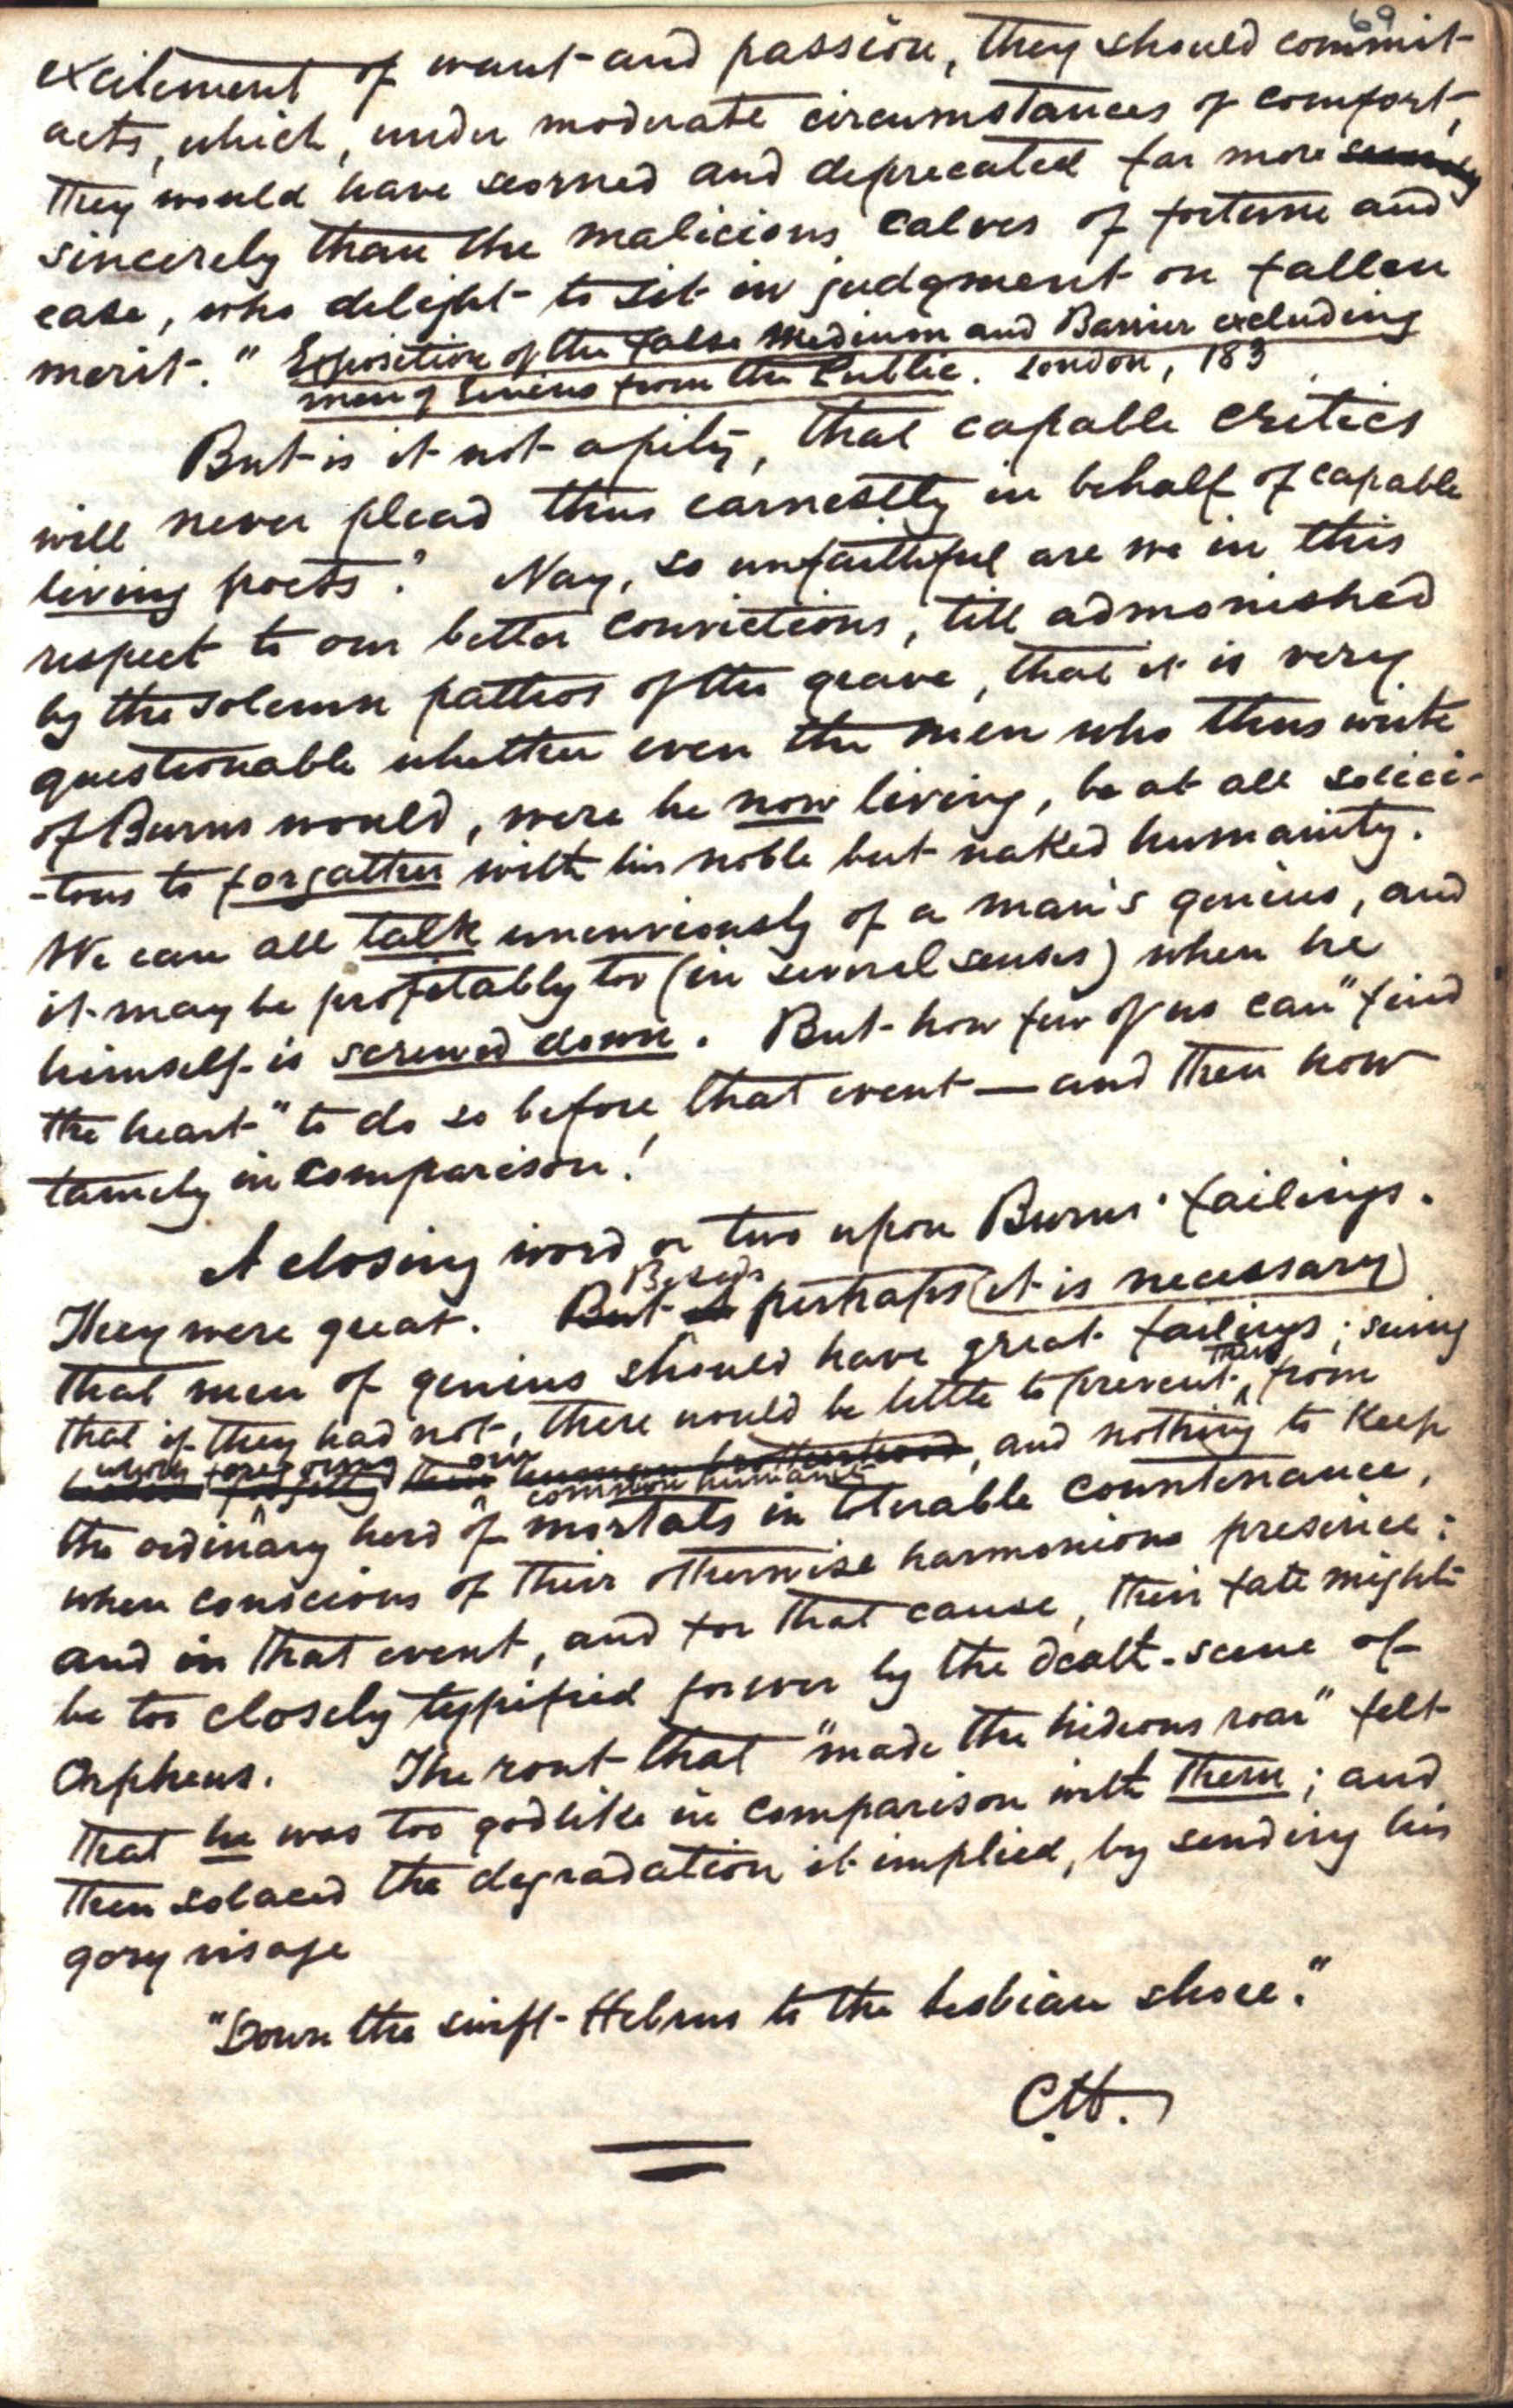 69
excitement of want and passion, they should commit
acts, which, under moderate circumstances of comfort,
they would have scorned and deprecated far more
sincerely than the malicious calves of fortune and
ease, who delight to sit in judgment on fallen
merit." Exposition of the False Medium and Barrier excluding
men of Genius from the Public. London, 183
But is it not a pity, that capable critics
will never plead thus earnestly in behalf of capable
living poets? Nay, so unfaithful are we in this
respect to our better convictions, till admonished
by the solemn pathos of the grave, that it is very
questionable whether even the men who thus write
of Burns would, were he now living, be at all solici-
-tous to forgather with his noble but naked humanity.
We can all talk unenviously of a man's genius, and
it may be profitably too (in several senses) when he
himself is screwed down. But how few of us can "find
the heart" to do so before that event—and then how
tamely in comparison!
A closing word or two upon Burns' failings.
Besides
They were great. But perhaps (it is necessary)
that men of genius should have great failings; seeing
them
that if they had not, there would be little to prevent from
wholly foregoing our common humanity
forgetting their human brotherhood, and nothing to keep
the ordinary herd of mortals in tolerable countenance,
when conscious of their otherwise harmonious presence:
and in that event, and for that cause, their fate might
be too closely typified forever by the death-scene of
Orpheus. The rout that "made the hideous roar" felt
that he was too godlike in comparison with them; and
then solaced the degradation it implied, by sending his
gory visage
"Down the swift Hebrus to the Lesbian shore."
C.H.